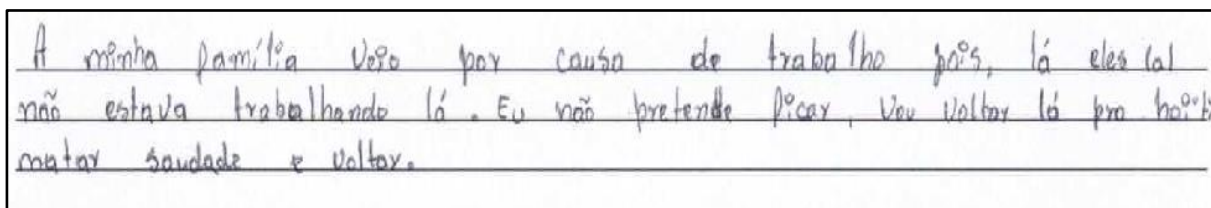 A minha família veio por causa de trabalho pois, lá eles (a)
não estava trabalhando lá. Eu não pretende ficar, vou voltar lá pro haiti
matar saudade e voltar.